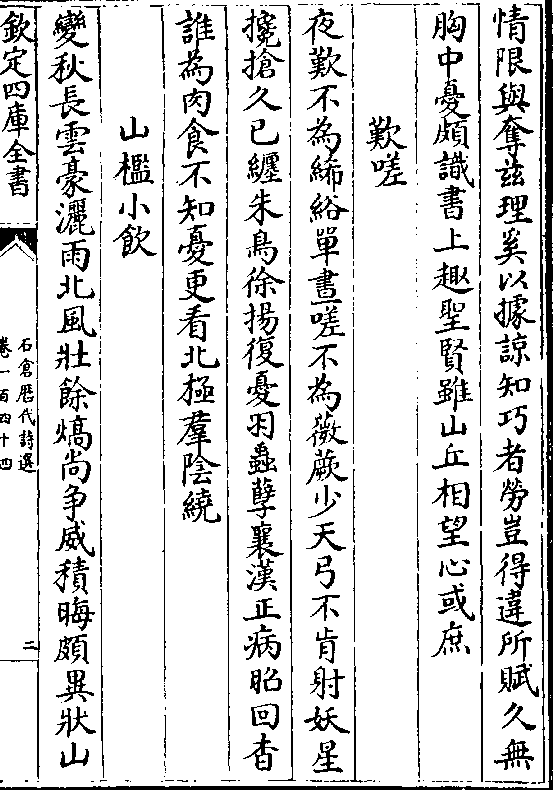 情限與奪兹理奚以據諒知巧者勞豈得違所賦久無
胸中憂頗識書上趣聖賢雖山丘相望心或庶
歎嗟
夜歎不為絺綌單晝嗟不為薇蕨少天弓不肯射妖星
攙搶久已纏朱鳥徐揚復憂羽蟲孽襄漢正病昭回杳
誰為肉食不知憂更看北極羣陰繞
山檻小飲
變秋長雲豪灑雨北風壯餘熇尚争威積晦頗異狀山
欽定四庫全書
石倉歴代詩選
卷一百四十四
二